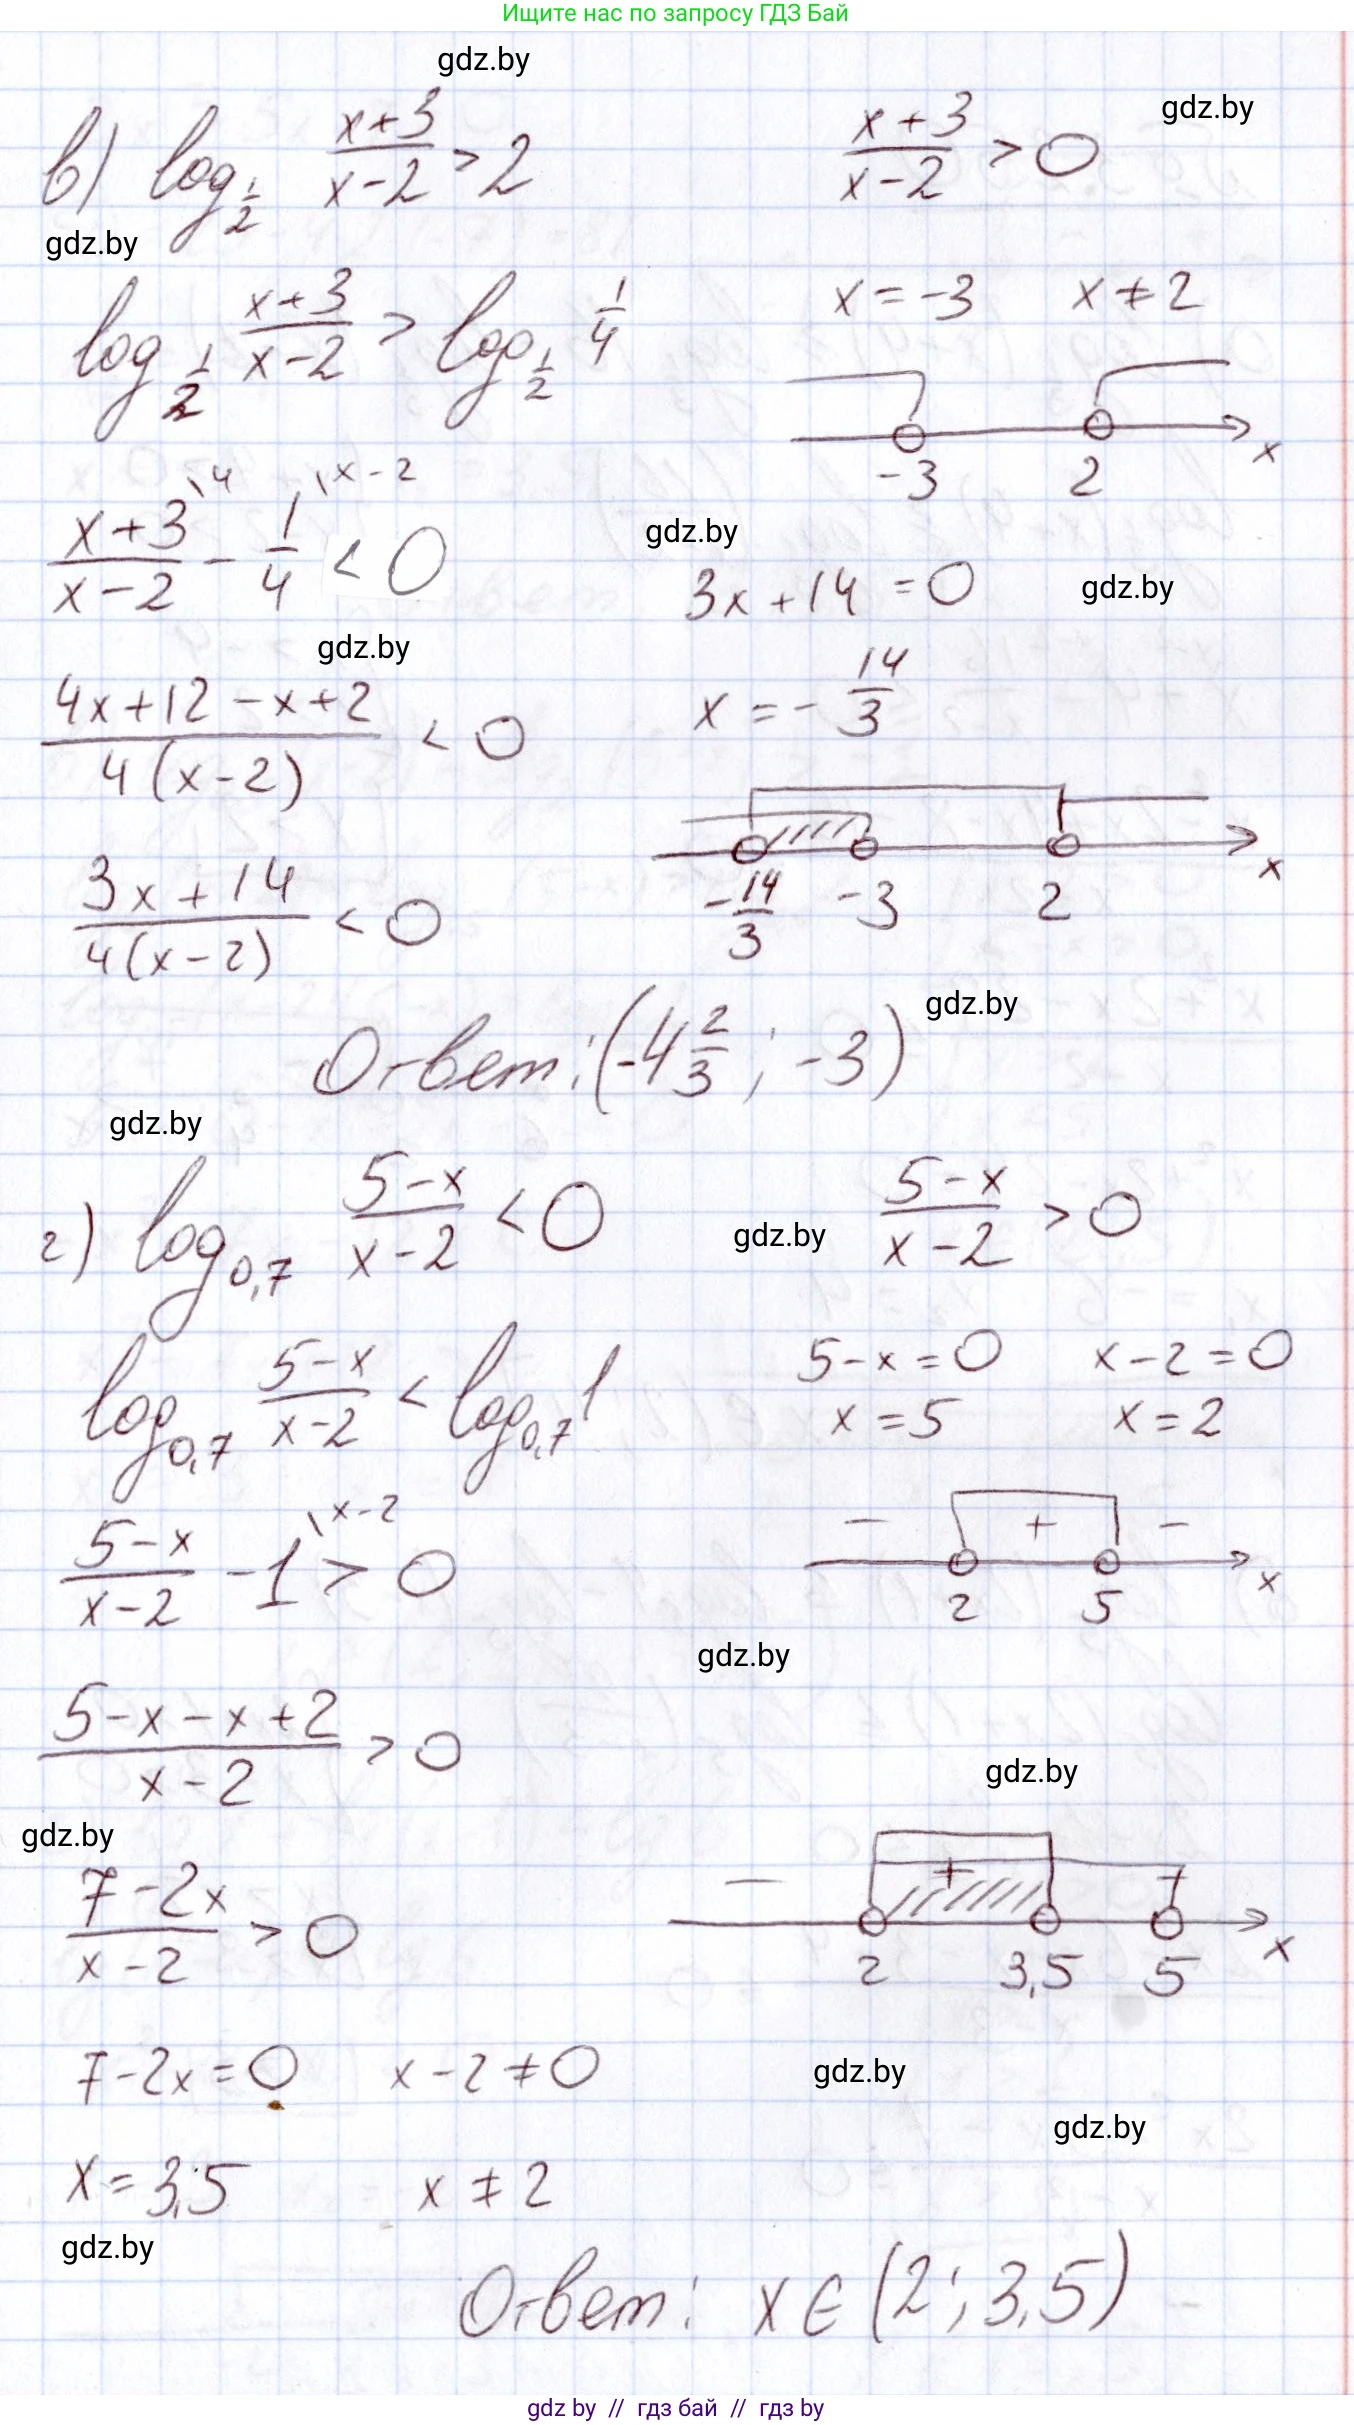 Ищите нас по запросу ГДЗ Бай
gdz.by
gdz.by
в) log_{1/2} (x+3)/(x-2) > 2
(x+3)/(x-2) > 0
gdz.by
log_{1/2} (x+3)/(x-2) > log_{1/2} 1/4
x = -3 x ≠ 2
-3 2 x
(x+3)/(x-2) \4 - 1/4 \x-2 < 0
gdz.by
3x + 14 = 0
gdz.by
gdz.by
(4x+12-x+2)/(4(x-2)) < 0
x = -14/3
-14/3 -3 2 x
(3x+14)/(4(x-2)) < 0
gdz.by
Ответ: (-4 2/3; -3)
gdz.by
г) log_{0,7} (5-x)/(x-2) < 0
gdz.by
(5-x)/(x-2) > 0
log_{0,7} (5-x)/(x-2) < log_{0,7} 1
5-x = 0 x-2 = 0
x = 5 x = 2
(5-x)/(x-2) - 1 \x-2 > 0
- + -
2 5 x
gdz.by
(5-x-x+2)/(x-2) > 0
gdz.by
gdz.by
(7-2x)/(x-2) > 0
- +
2 3,5 5 x
7-2x = 0 x-2 ≠ 0
gdz.by
gdz.by
x = 3,5 x ≠ 2
gdz.by
Ответ: x ∈ (2; 3,5)
gdz by // гдз бай // гдз by